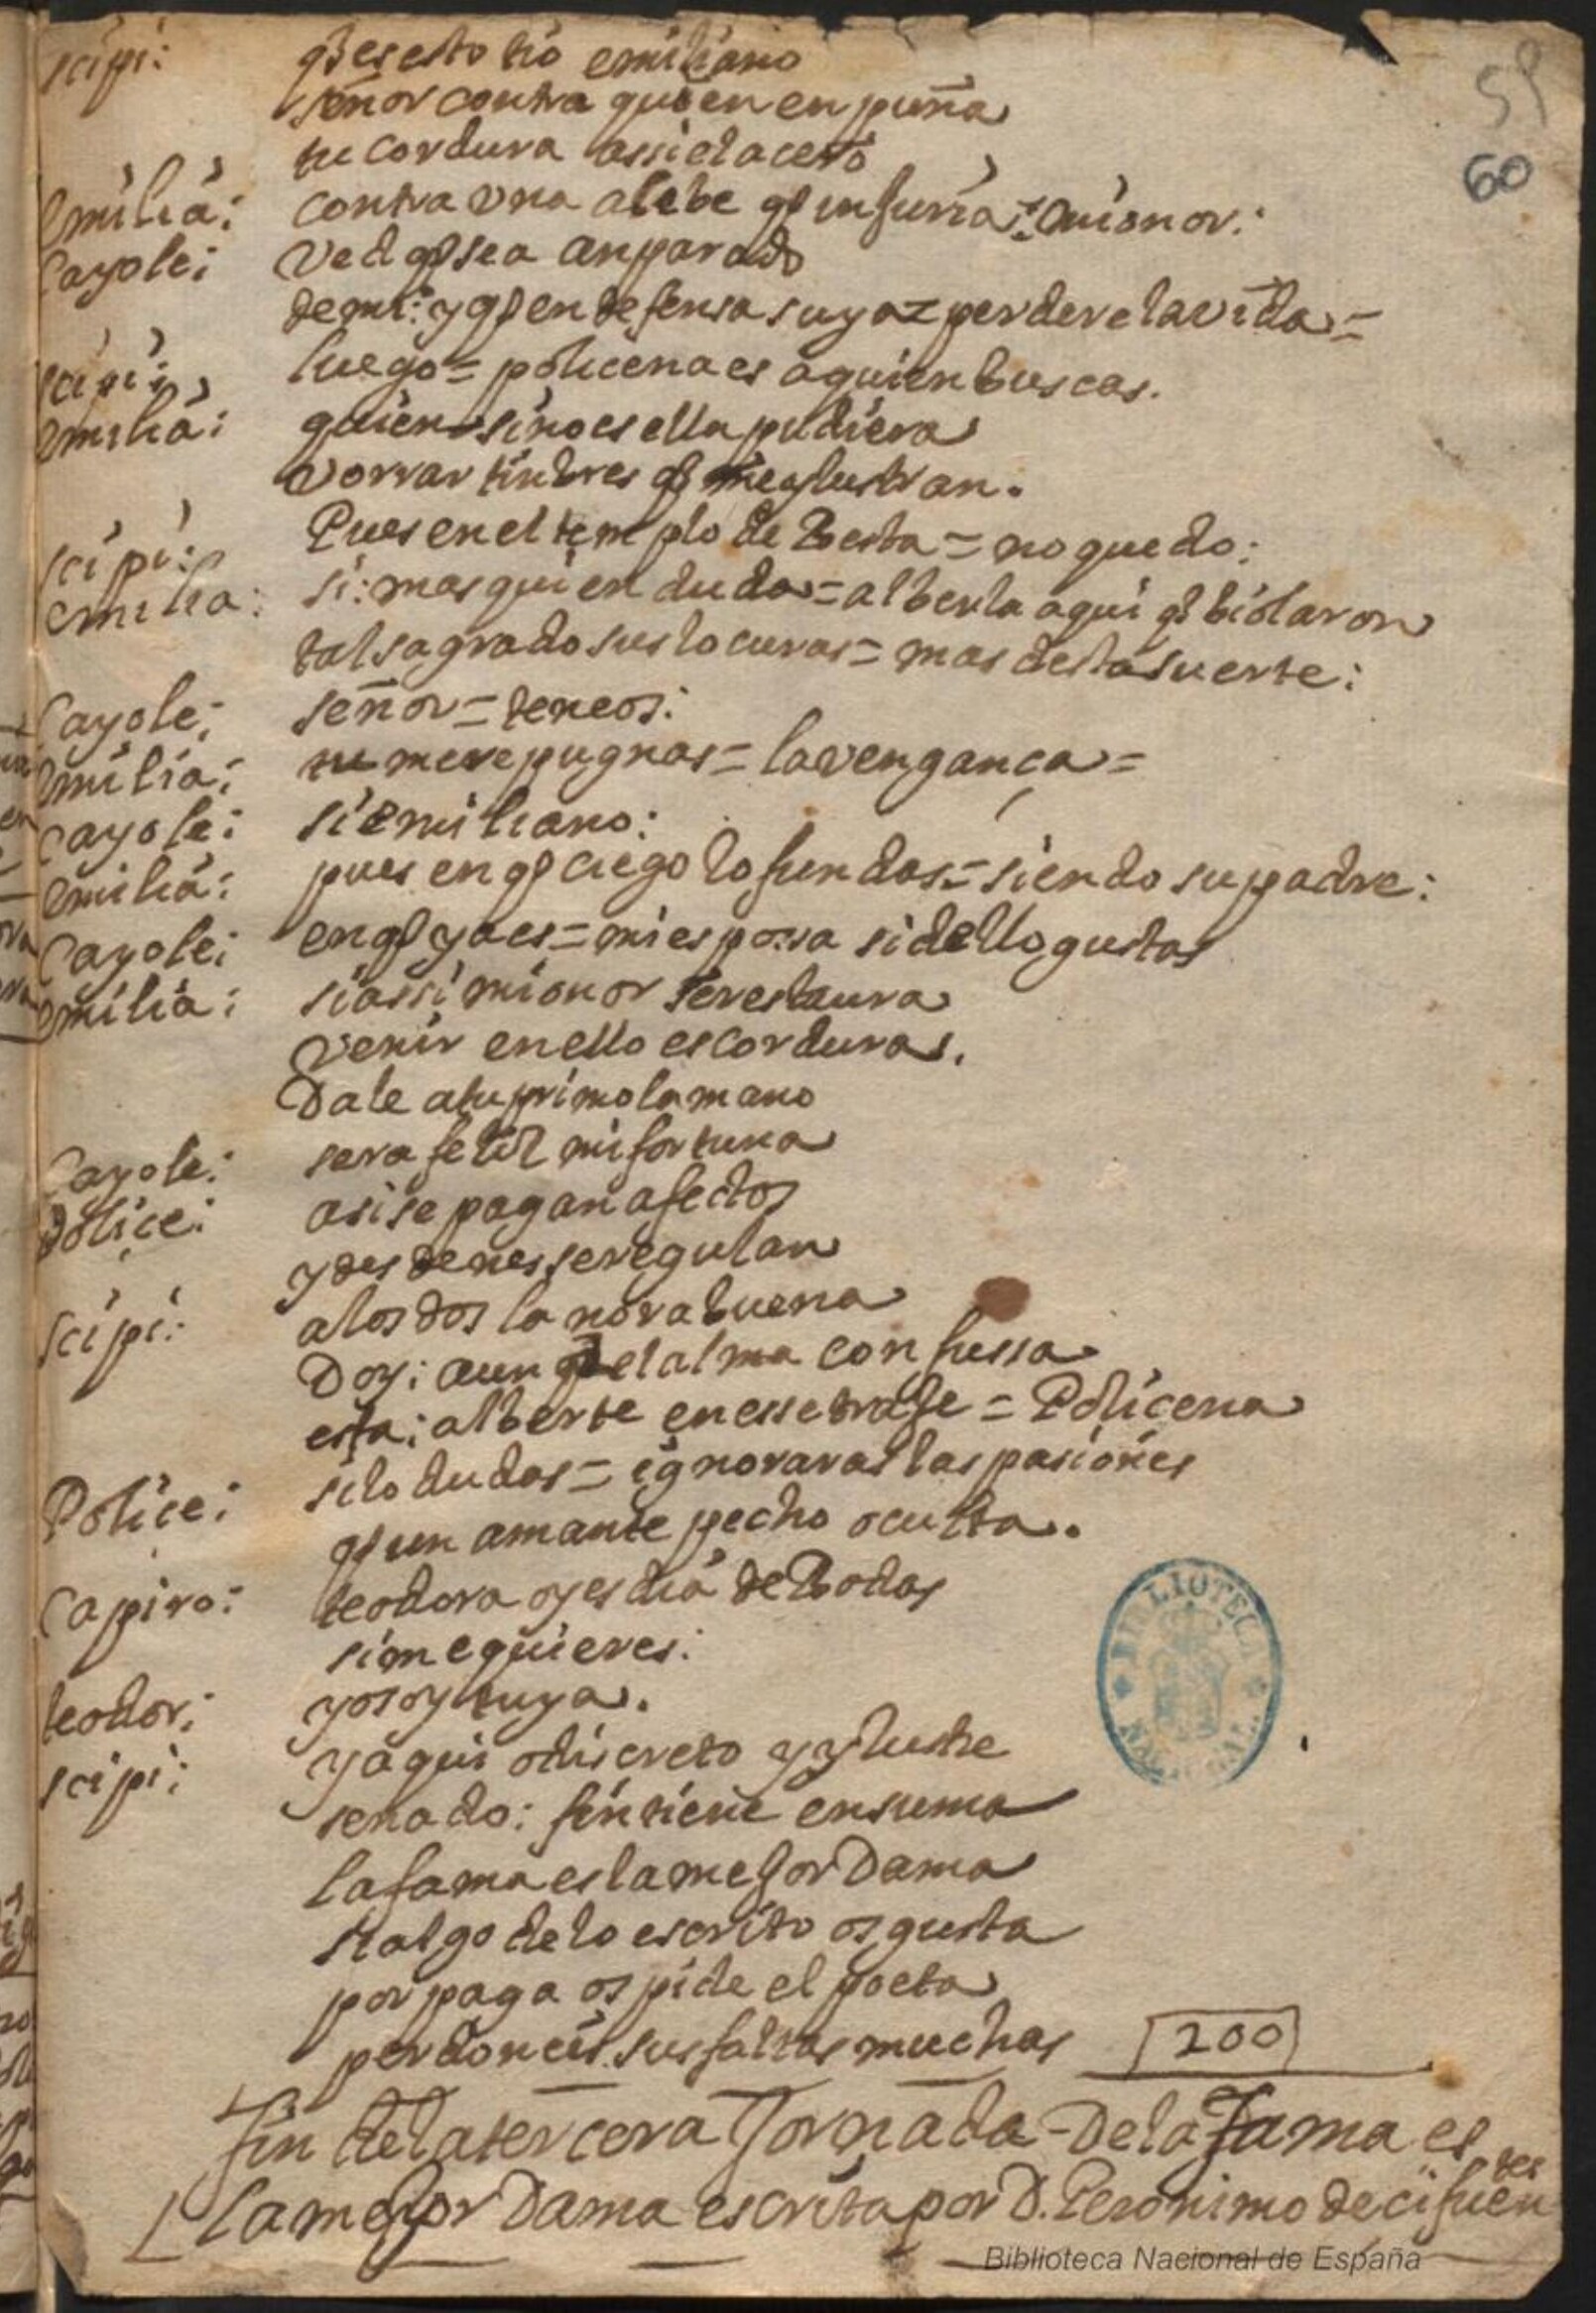 59
60
scipi: q̃ es esto tio emiliano
señor contra quien en puña
tu cordura assi el acero
emilia: contra vna alebe q̃ infurria = mi onor:
Cayole: Ved q̃ sea anparado
de mi: y q̃ en defensa suya = perdere la vida =
scipi: luego = policena es a quien buscas.
emilia: quien sino es ella pudiera
vorrar tinbres q̃ me ylustran.
scipi: Pues en el templo de Besta = no quedo:
emilia: si: mas quien duda = al berla aqui q̃ biolaron
tal sagrado sus locuras = mas desta suerte:
Cayole: señor = teneos:
emilia: tu me repugnas = la vengança =
cayole: si emiliano:
emilia: pues en q̃ ciego lo fundas = siendo su padre:
Cayole: en q̃ ya es = mi espossa si dello gustas
emilia: si assi mi onor se restaura
venir en ello es cordura.
Dale a tu primo la mano
Cayole: sera feliz mi fortuna
Police: asi se pagan afectos
y desdenes se regulan
scipi: a los dos la norabuena
Doy: aun q̃ el alma confussa
esta: al berte en esse traje = Policena
Police: si lo dudas = ignoraras las pasiones
q̃ un amante pecho oculta.
Capiro: teodora oy es dia de Bodas
si me quieres:
teodor: yo soy tuya.
scipi: y aqui o discreto y ylustre
senado: fin tiene en suma
la fama es la mejor Dama
si algo de lo escrito os gusta
por paga os pide el poeta
perdoneis sus faltas muchas 200
fin de la tercera Jornada De la Fama es
la mejor Dama escrita por D. Geronimo de cifuentes
BIBLIOTECA NACIONAL
Biblioteca Nacional de España